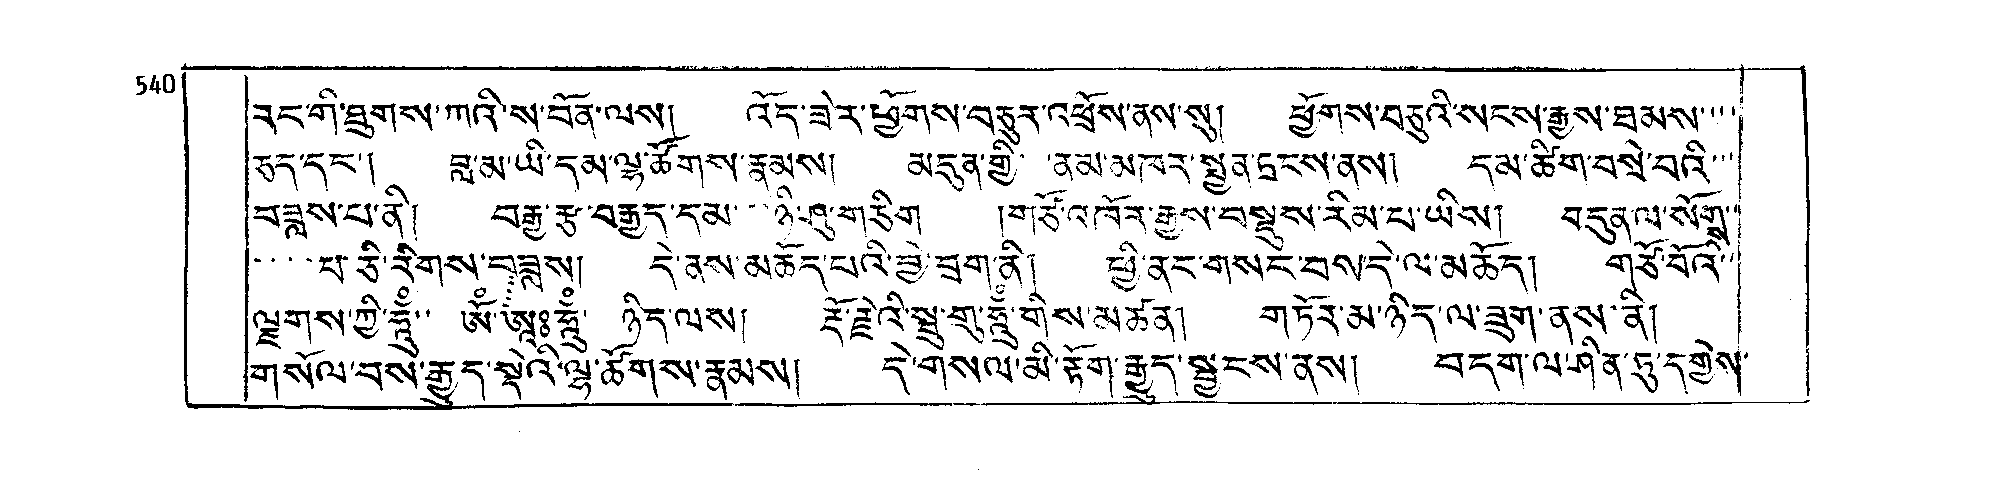 540
རང་གི་ཐུགས་ཀའི་ས་བོན་ལས། འོད་ཟེར་ཕྱོགས་བཅུར་འཕྲོས་ནས་སུ། ཕྱོགས་བཅུའི་སངས་རྒྱས་ཐམས་
ཅད་དང་། བླ་མ་ཡི་དམ་ལྷ་ཚོགས་རྣམས། མདུན་གྱི་ ནམ་མཁར་སྤྱན་དྲངས་ནས། དམ་ཚིག་བསྲེ་བའི་
བཟླས་པ་ནི། བརྒྱ་རྩ་བརྒྱད་དམ་ ཉི་ཤུ་གཅིག །གཙོ་འཁོར་རྒྱས་བསྡུས་རིམ་པ་ཡིས། བདུན་ལ་སོགས་
པ་ཅི་རིགས་བཟླས། དེ་ནས་མཆོད་པའི་བྱེ་བྲག་ནི། ཕྱི་ནང་གསང་བས་དེ་ལ་མཆོད། གཙོ་བོའི་
ལྗགས་ཀྱི་ཧཱུྃ་ ཨོཾ་ཨཱཿཧཱུྃ་ ཉིད་ལས། རྡོ་རྗེའི་སྦུ་གུ་ཧཱུྃ་གིས་མཚན། གཏོར་མ་ཉིད་ལ་ཟུག་ནས་ནི།
གསོལ་བས་རྒྱུད་སྡེའི་ལྷ་ཚོགས་རྣམས། དེ་གསལ་མི་རྟོག་རྒྱུད་སྦྱངས་ནས། བདག་ལ་ཤིན་ཏུ་དགྱེས་